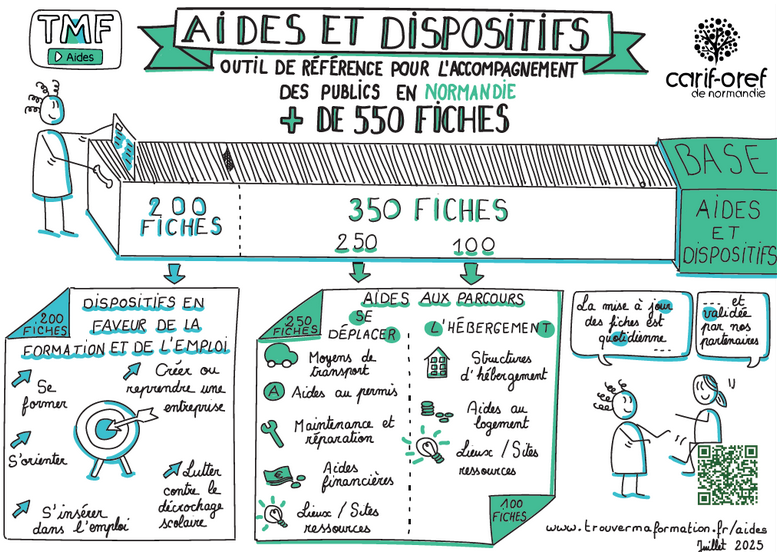 TMF
Aides
AIDES ET DISPOSITIFS
OUTIL DE RÉFÉRENCE POUR L'ACCOMPAGNEMENT
DES PUBLICS EN NORMANDIE
+ DE 550 FICHES
carif-oref
de normandie
BASE
AIDES
ET
DISPOSITIFS
200
FICHES
350 FICHES
250
100
200
FICHES
DISPOSITIFS EN
FAVEUR DE LA
FORMATION ET DE L'EMPLOI
Se
former
Créer ou
reprendre une
entreprise
S'orienter
Lutter
contre le
décrochage
scolaire
S'insérer
dans l'emploi
250
FICHES
AIDES AUX PARCOURS
SE
DÉPLACER
Moyens de
transport
A
Aides au permis
Maintenance et
réparation
€
Aides
financières
Lieux / Sites
ressources
L'HÉBERGEMENT
Structures
d'hébergement
Aides au
logement
Lieux / Sites
ressources
100
FICHES
La mise à jour
des fiches est
quotidienne
---
--- et
validée
par nos
partenaires
www.trouvermaformation.fr/aides
Juillet 2025